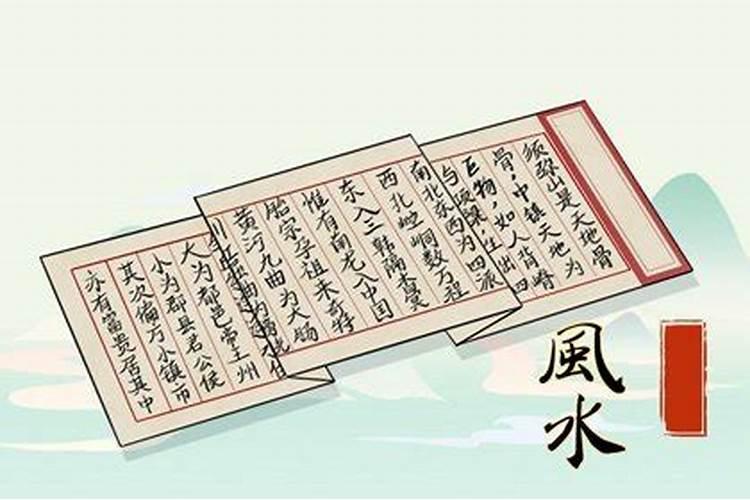 须弥山是天地骨
骨,中镇天地为
巨物,如人背嵴
与项梁,生出四
南北东西为四派
西北崆峒数万程
东入三韩隔杳冥
惟有南龙入中国
胎宗孕祖来奇特
黄河九曲为大肠
大为都邑帝王州
小为郡县君公侯
其次偏方小镇市
亦有富贵居其中
風水